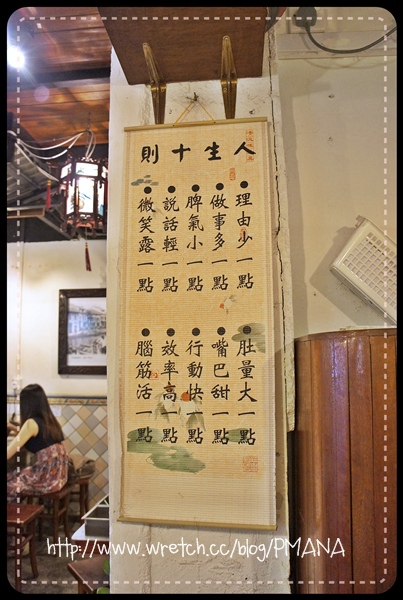 人生十則
理由少一點
做事多一點
脾氣小一點
說話輕一點
微笑露一點
肚量大一點
嘴巴甜一點
行動快一點
效率高一點
腦筋活一點
http://www.wretch.cc/blog/PMANA